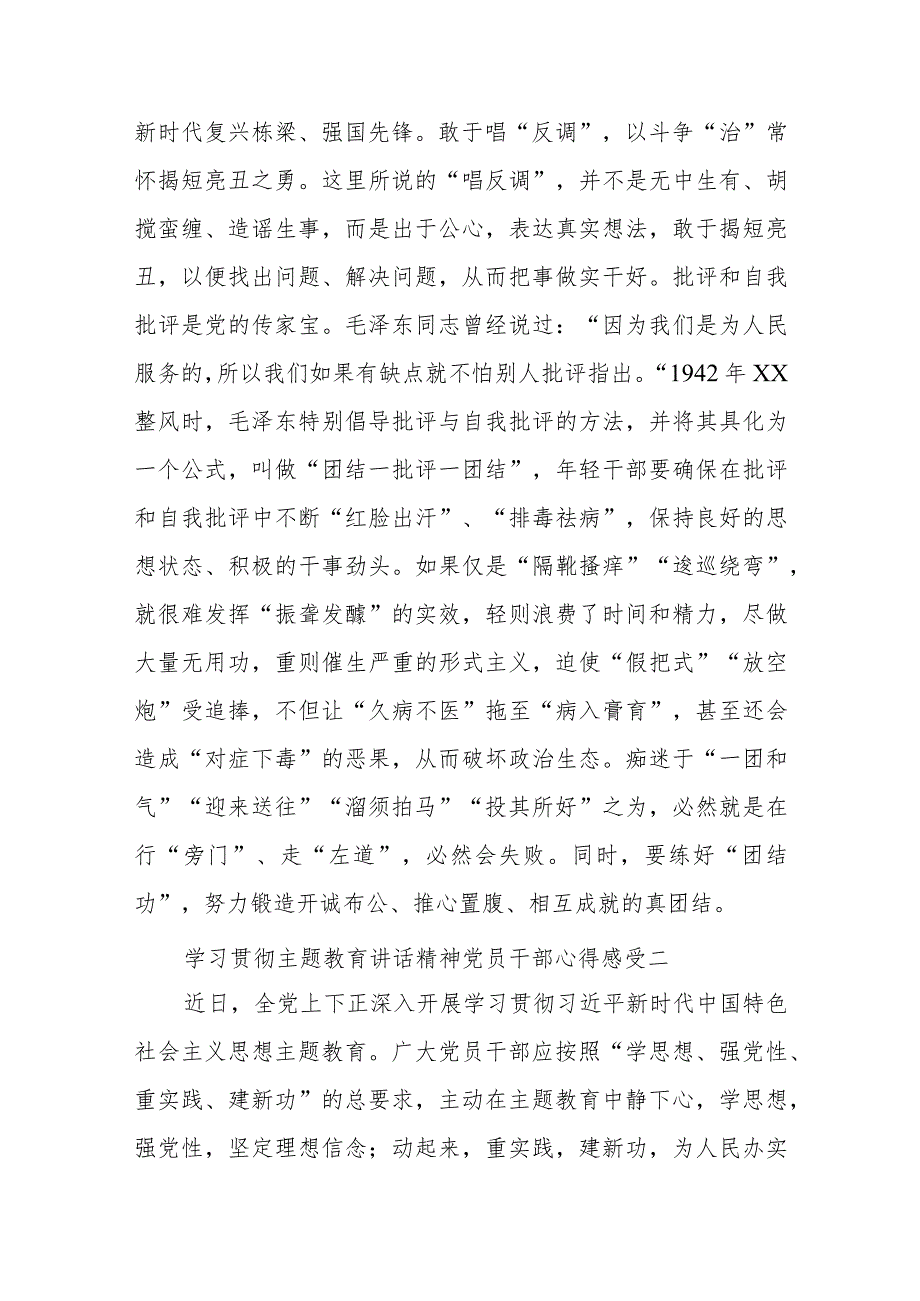 新时代复兴栋梁、强国先锋。敢于唱“反调”，以斗争“治”常
怀揭短亮丑之勇。这里所说的“唱反调”，并不是无中生有、胡
搅蛮缠、造谣生事，而是出于公心，表达真实想法，敢于揭短亮
丑，以便找出问题、解决问题，从而把事做实干好。批评和自我
批评是党的传家宝。毛泽东同志曾经说过：“因为我们是为人民
服务的，所以我们如果有缺点就不怕别人批评指出。“1942 年 XX
整风时，毛泽东特别倡导批评与自我批评的方法，并将其具化为
一个公式，叫做“团结一批评一团结”，年轻干部要确保在批评
和自我批评中不断“红脸出汗”、“排毒祛病”，保持良好的思
想状态、积极的干事劲头。如果仅是“隔靴搔痒”“逡巡绕弯”，
就很难发挥“振聋发醵”的实效，轻则浪费了时间和精力，尽做
大量无用功，重则催生严重的形式主义，迫使“假把式”“放空
炮”受追捧，不但让“久病不医”拖至“病入膏育”，甚至还会
造成“对症下毒”的恶果，从而破坏政治生态。痴迷于“一团和
气”“迎来送往”“溜须拍马”“投其所好”之为，必然就是在
行“旁门”、走“左道”，必然会失败。同时，要练好“团结
功”，努力锻造开诚布公、推心置腹、相互成就的真团结。
学习贯彻主题教育讲话精神党员干部心得感受二
近日，全党上下正深入开展学习贯彻习近平新时代中国特色
社会主义思想主题教育。广大党员干部应按照“学思想、强党性、
重实践、建新功”的总要求，主动在主题教育中静下心，学思想，
强党性，坚定理想信念；动起来，重实践，建新功，为人民办实